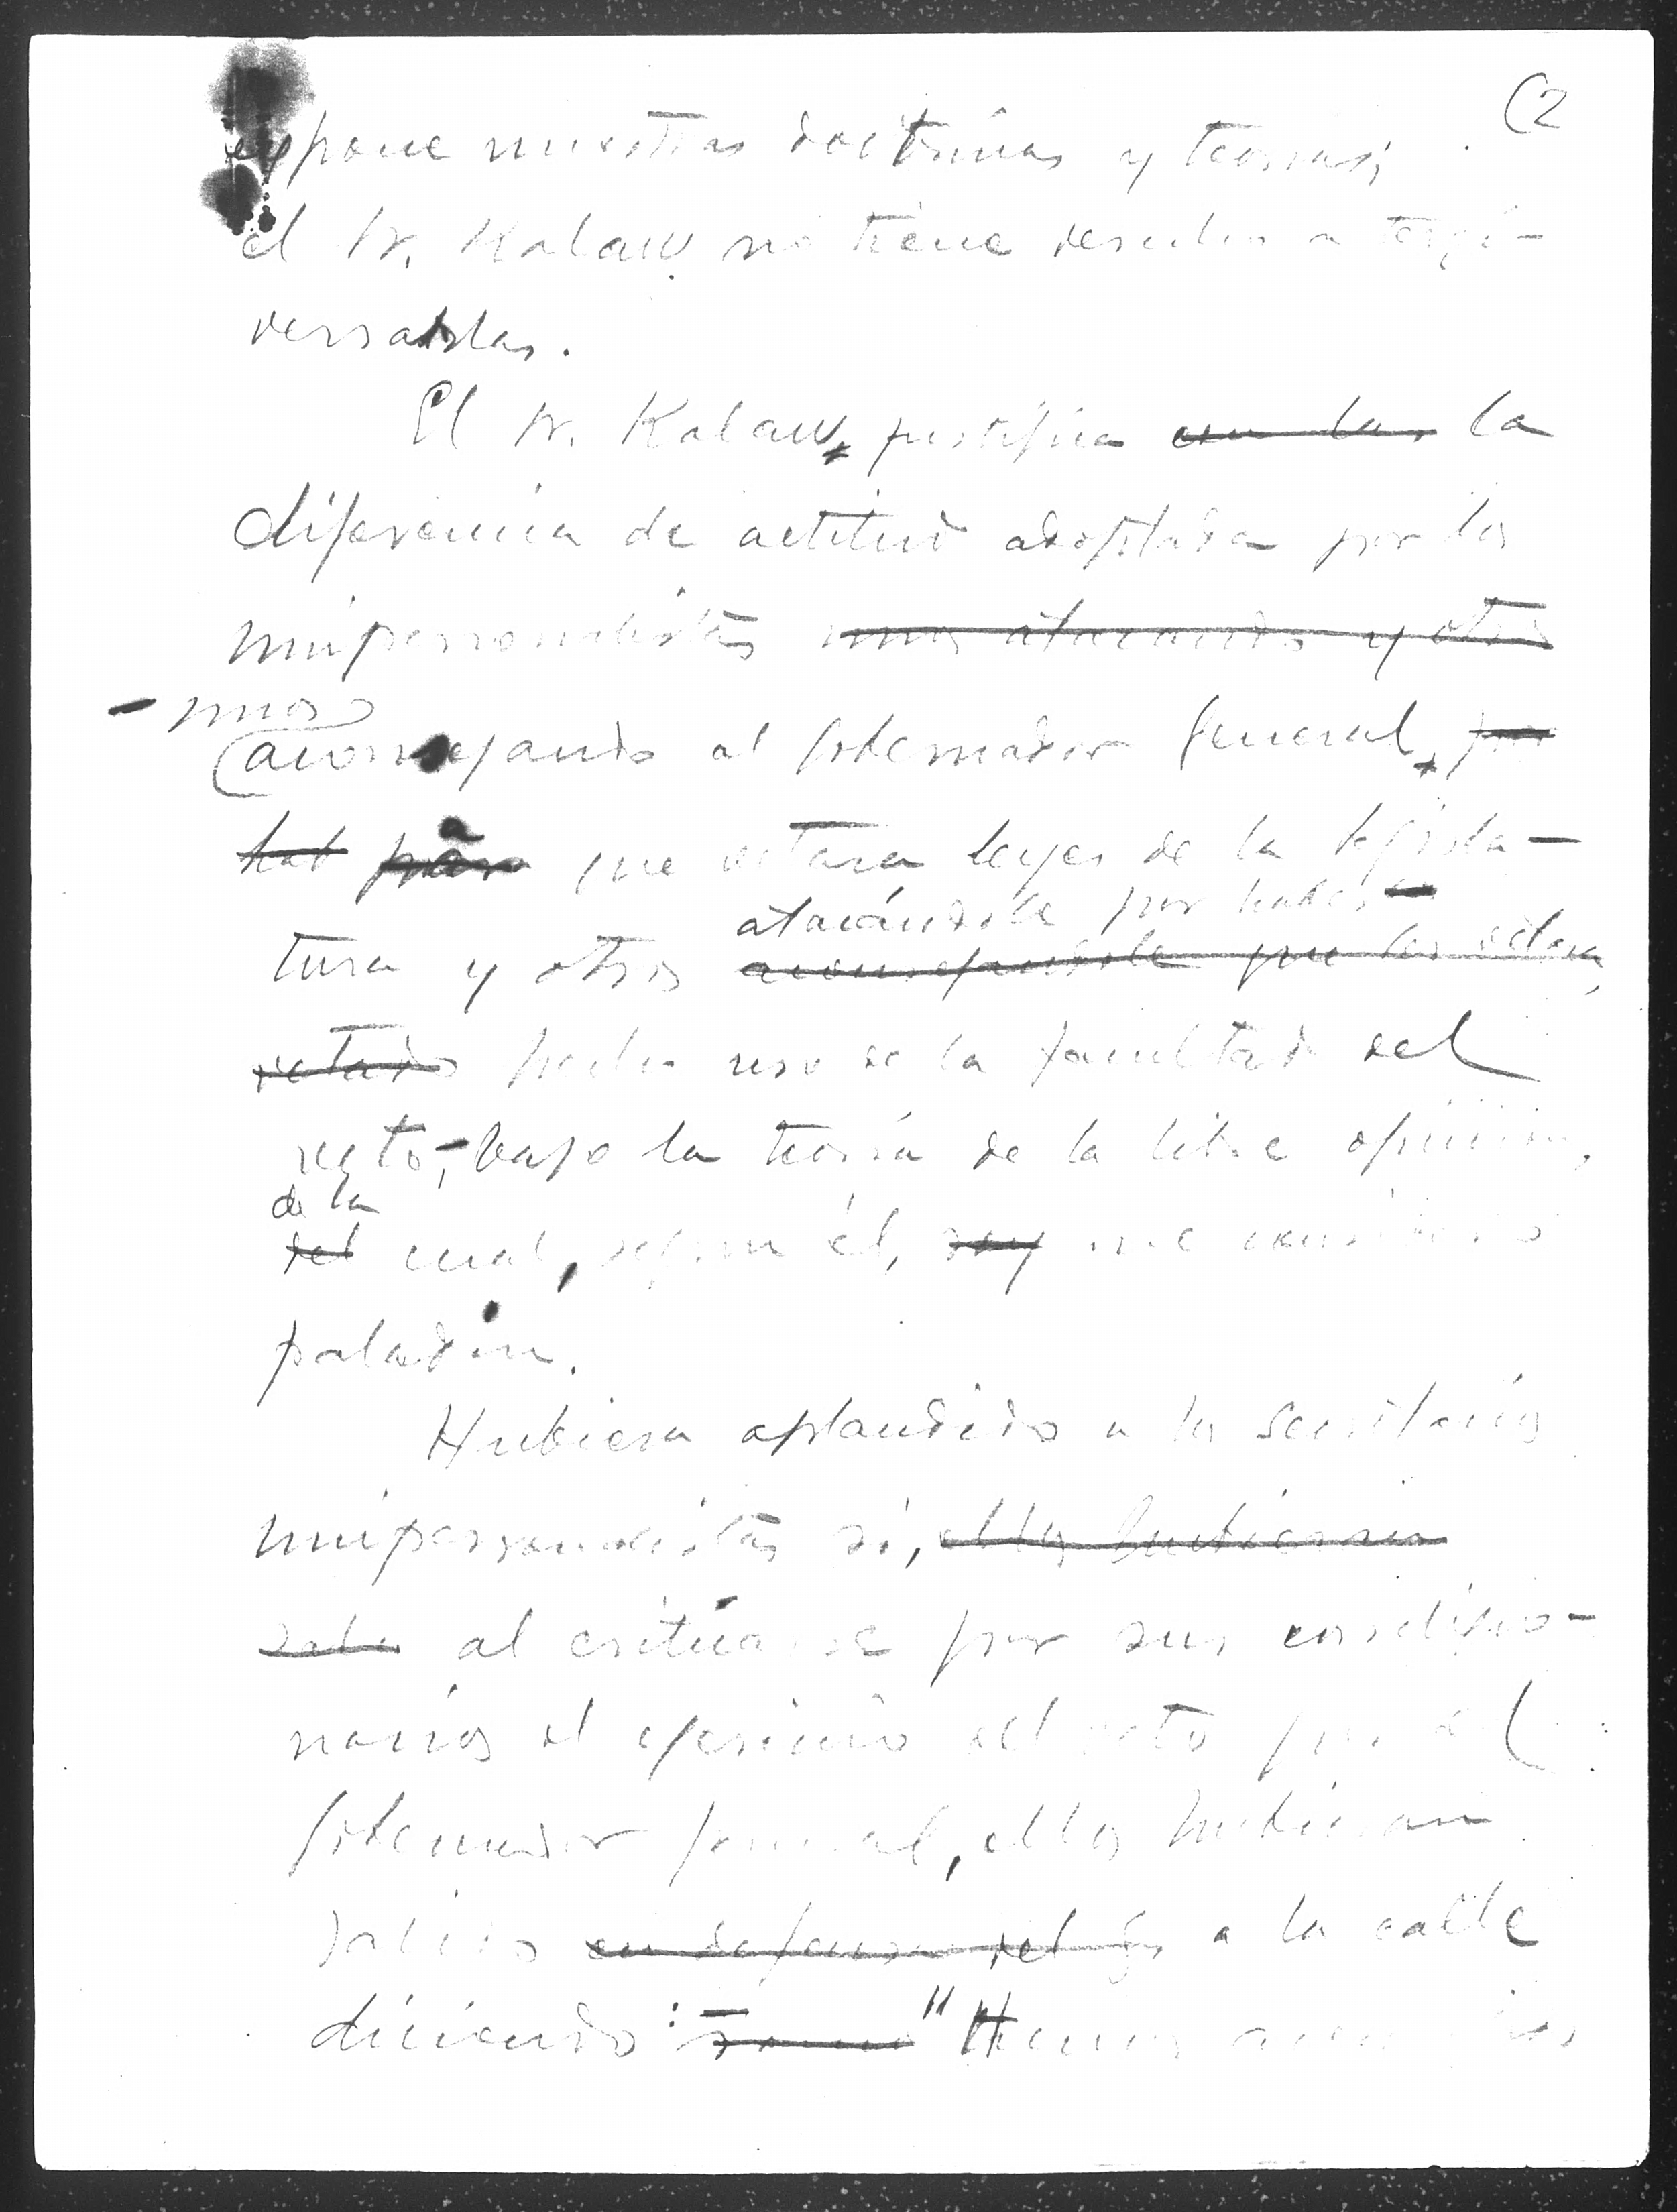 (2
expone nuestras doctrinas y teorías;
el Sr. Kalaw no tiene derecho a tergi-
versarlas.
El Sr. Kalaw, justifica con las la
diferencia de actitud adoptada por los
unipersonalistas unos atacando y otros
- unos
aconsejando al Gobernador General, por
hab para a que vetara leyes de la legisla-
atacándole por haber
tura y otros aconsejándole que las vetara,
vetado hecho uso de la facultad del
veto,- bajo la teoría de la libre opinión,
de la
del cual, según él, soy me considero
paladín.
Hubiera aplaudido a los secretarios
unipersonalistas si, ellos hubieran
sali al criticarse por sus correligio-
narios el ejercicio del veto por el
Gobernador general, ellos hubieran
salido en defensa del a la calle
diciendo: "Hemos